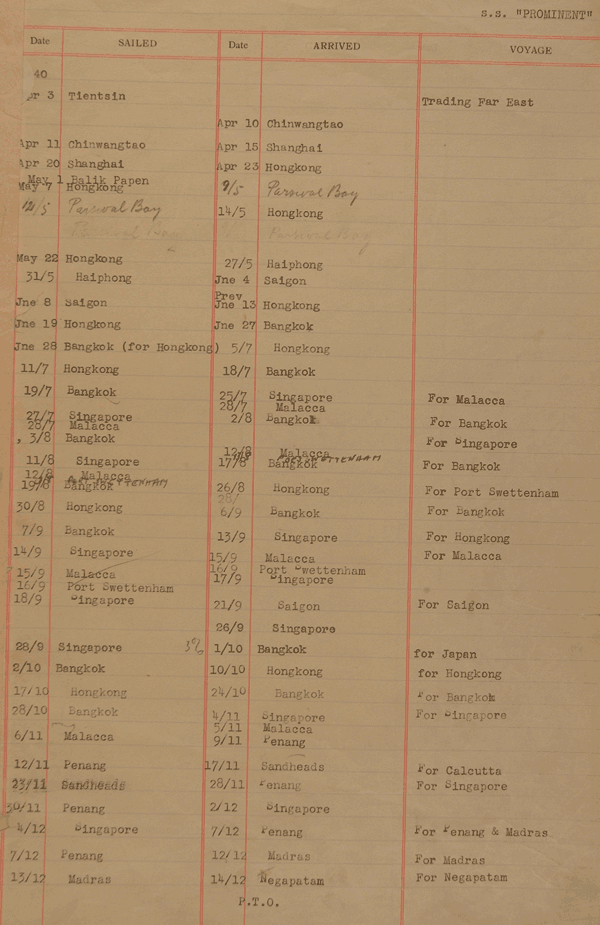 S.S. "PROMINENT"
Date SAILED Date ARRIVED VOYAGE
40
Apr 3 Tientsin Trading Far East
Apr 10 Chinwangtao
Apr 11 Chinwangtao Apr 15 Shanghai
Apr 20 Shanghai Apr 23 Hongkong
May 1 Balik Papen
May 7 Hongkong 9/5 Parsval Bay
12/5 Parsval Bay 14/5 Hongkong
May 22 Hongkong 27/5 Haiphong
31/5 Haiphong Jne 4 Saigon
Prev
Jne 8 Saigon Jne 13 Hongkong
Jne 19 Hongkong Jne 27 Bangkok
Jne 28 Bangkok (for Hongkong) 5/7 Hongkong
11/7 Hongkong 18/7 Bangkok
19/7 Bangkok 25/7 Singapore For Malacca
28/7 Malacca
27/7 Singapore 2/8 Bangkok For Bangkok
28/7 Malacca
3/8 Bangkok For Singapore
12/8 Malacca
11/8 Singapore 17/8 Bangkok PORT SWETTENHAM For Bangkok
12/8 Malacca
19/8 Bangkok PORT SWETTENHAM 26/8 Hongkong For Port Swettenham
28/
30/8 Hongkong 6/9 Bangkok For Bangkok
7/9 Bangkok 13/9 Singapore For Hongkong
14/9 Singapore 15/9 Malacca For Malacca
16/9 Port Swettenham
15/9 Malacca 17/9 Singapore
16/9 Port Swettenham
18/9 Singapore 21/9 Saigon For Saigon
26/9 Singapore
28/9 Singapore 1/10 Bangkok for Japan
2/10 Bangkok 10/10 Hongkong for Hongkong
17/10 Hongkong 24/10 Bangkok For Bangkok
28/10 Bangkok 4/11 Singapore For Singapore
5/11 Malacca
6/11 Malacca 9/11 Penang
12/11 Penang 17/11 Sandheads For Calcutta
23/11 Sandheads 28/11 Penang For Singapore
30/11 Penang 2/12 Singapore
4/12 Singapore 7/12 Penang For Penang & Madras
7/12 Penang 12/12 Madras For Madras
13/12 Madras 14/12 Negapatam For Negapatam
P.T.O.